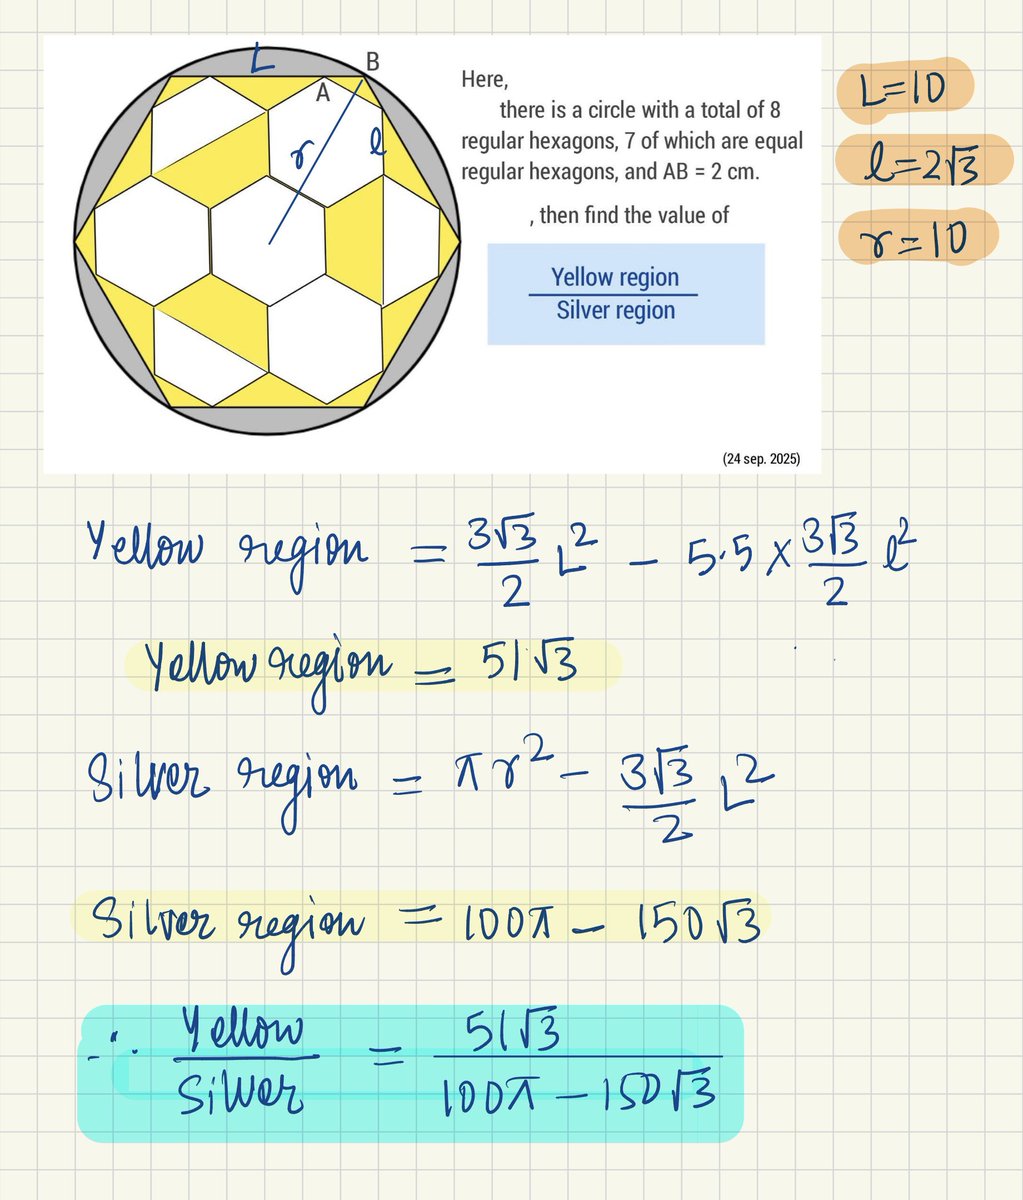 L
B
A
r
l
Here,
there is a circle with a total of 8
regular hexagons, 7 of which are equal
regular hexagons, and AB = 2 cm.
, then find the value of
Yellow region
Silver region
(24 sep. 2025)
L=10
l=2√3
r=10
Yellow region = 3√3/2 L² - 5.5 × 3√3/2 l²
Yellow region = 51√3
Silver region = πr² - 3√3/2 L²
Silver region = 100π - 150√3
∴ Yellow/Silver = 51√3/100π - 150√3